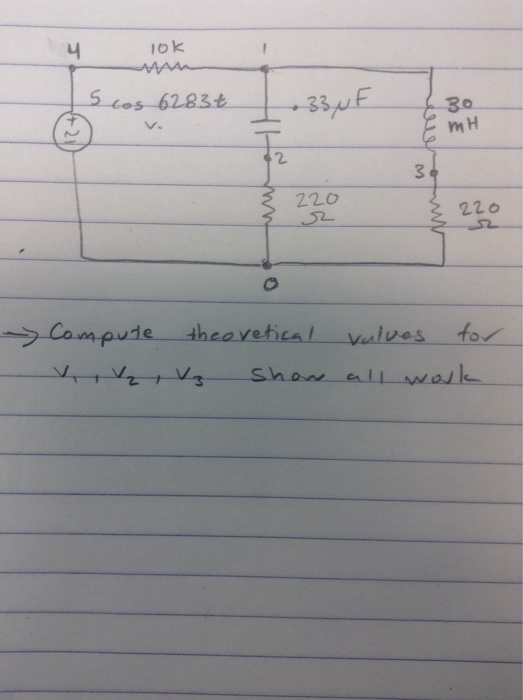 4 10k 1
5 cos 6283t .33μF 30
v. mH
2
3
220 220
Ω Ω
0
→ Compute theoretical values for
V₁, V₂, V₃ Show all work